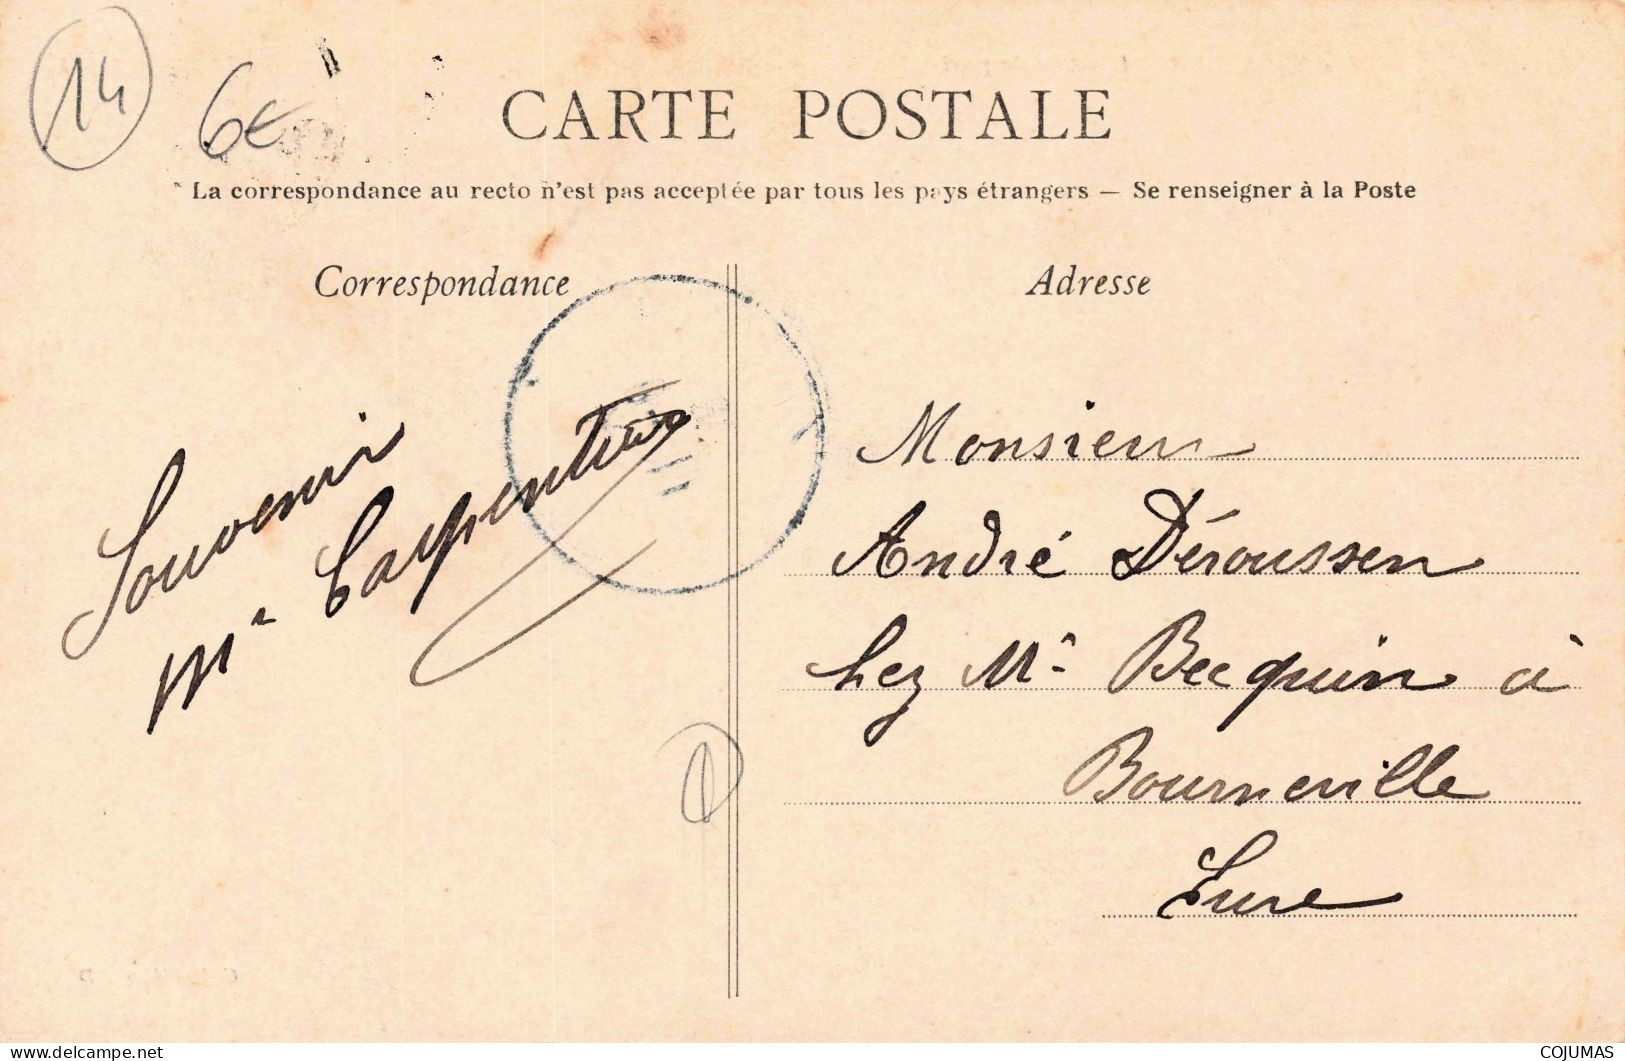 14
6€
CARTE POSTALE
La correspondance au recto n'est pas acceptée par tous les pays étrangers — Se renseigner à la Poste
Correspondance
Souvenir
Mr Carpentier
Adresse
Monsieur
André Déroussen
chez Mr Becquin à
Bourneville
Eure
www.delcampe.net
COJUMAS